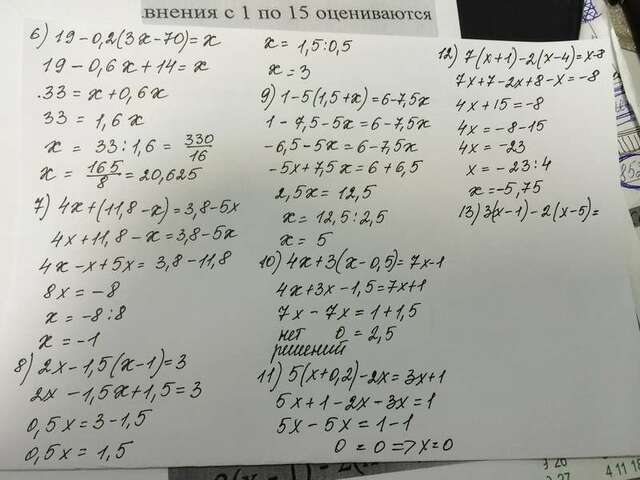 внения с 1 по 15 оцениваются
6) 19 - 0,2(3x - 70) = x
19 - 0,6x + 14 = x
33 = x + 0,6x
33 = 1,6x
x = 33 : 1,6 = 330/16
x = 165/8 = 20,625
7) 4x + (11,8 - x) = 3,8 - 5x
4x + 11,8 - x = 3,8 - 5x
4x - x + 5x = 3,8 - 11,8
8x = -8
x = -8 : 8
x = -1
8) 2x - 1,5(x - 1) = 3
2x - 1,5x + 1,5 = 3
0,5x = 3 - 1,5
0,5x = 1,5
x = 1,5 : 0,5
x = 3
9) 1 - 5(1,5 + x) = 6 - 7,5x
1 - 7,5 - 5x = 6 - 7,5x
-6,5 - 5x = 6 - 7,5x
-5x + 7,5x = 6 + 6,5
2,5x = 12,5
x = 12,5 : 2,5
x = 5
10) 4x + 3(x - 0,5) = 7x - 1
4x + 3x - 1,5 = 7x + 1
7x - 7x = 1 + 1,5
нет 0 = 2,5
решений
11) 5(x + 0,2) - 2x = 3x + 1
5x + 1 - 2x - 3x = 1
5x - 5x = 1 - 1
0 = 0 => x = 0
12) 7(x + 1) - 2(x - 4) = x - 8
7x + 7 - 2x + 8 - x = -8
4x + 15 = -8
4x = -8 - 15
4x = -23
x = -23 : 4
x = -5,75
13) 3(x - 1) - 2(x - 5) =
3 26
3 27
4 11 15